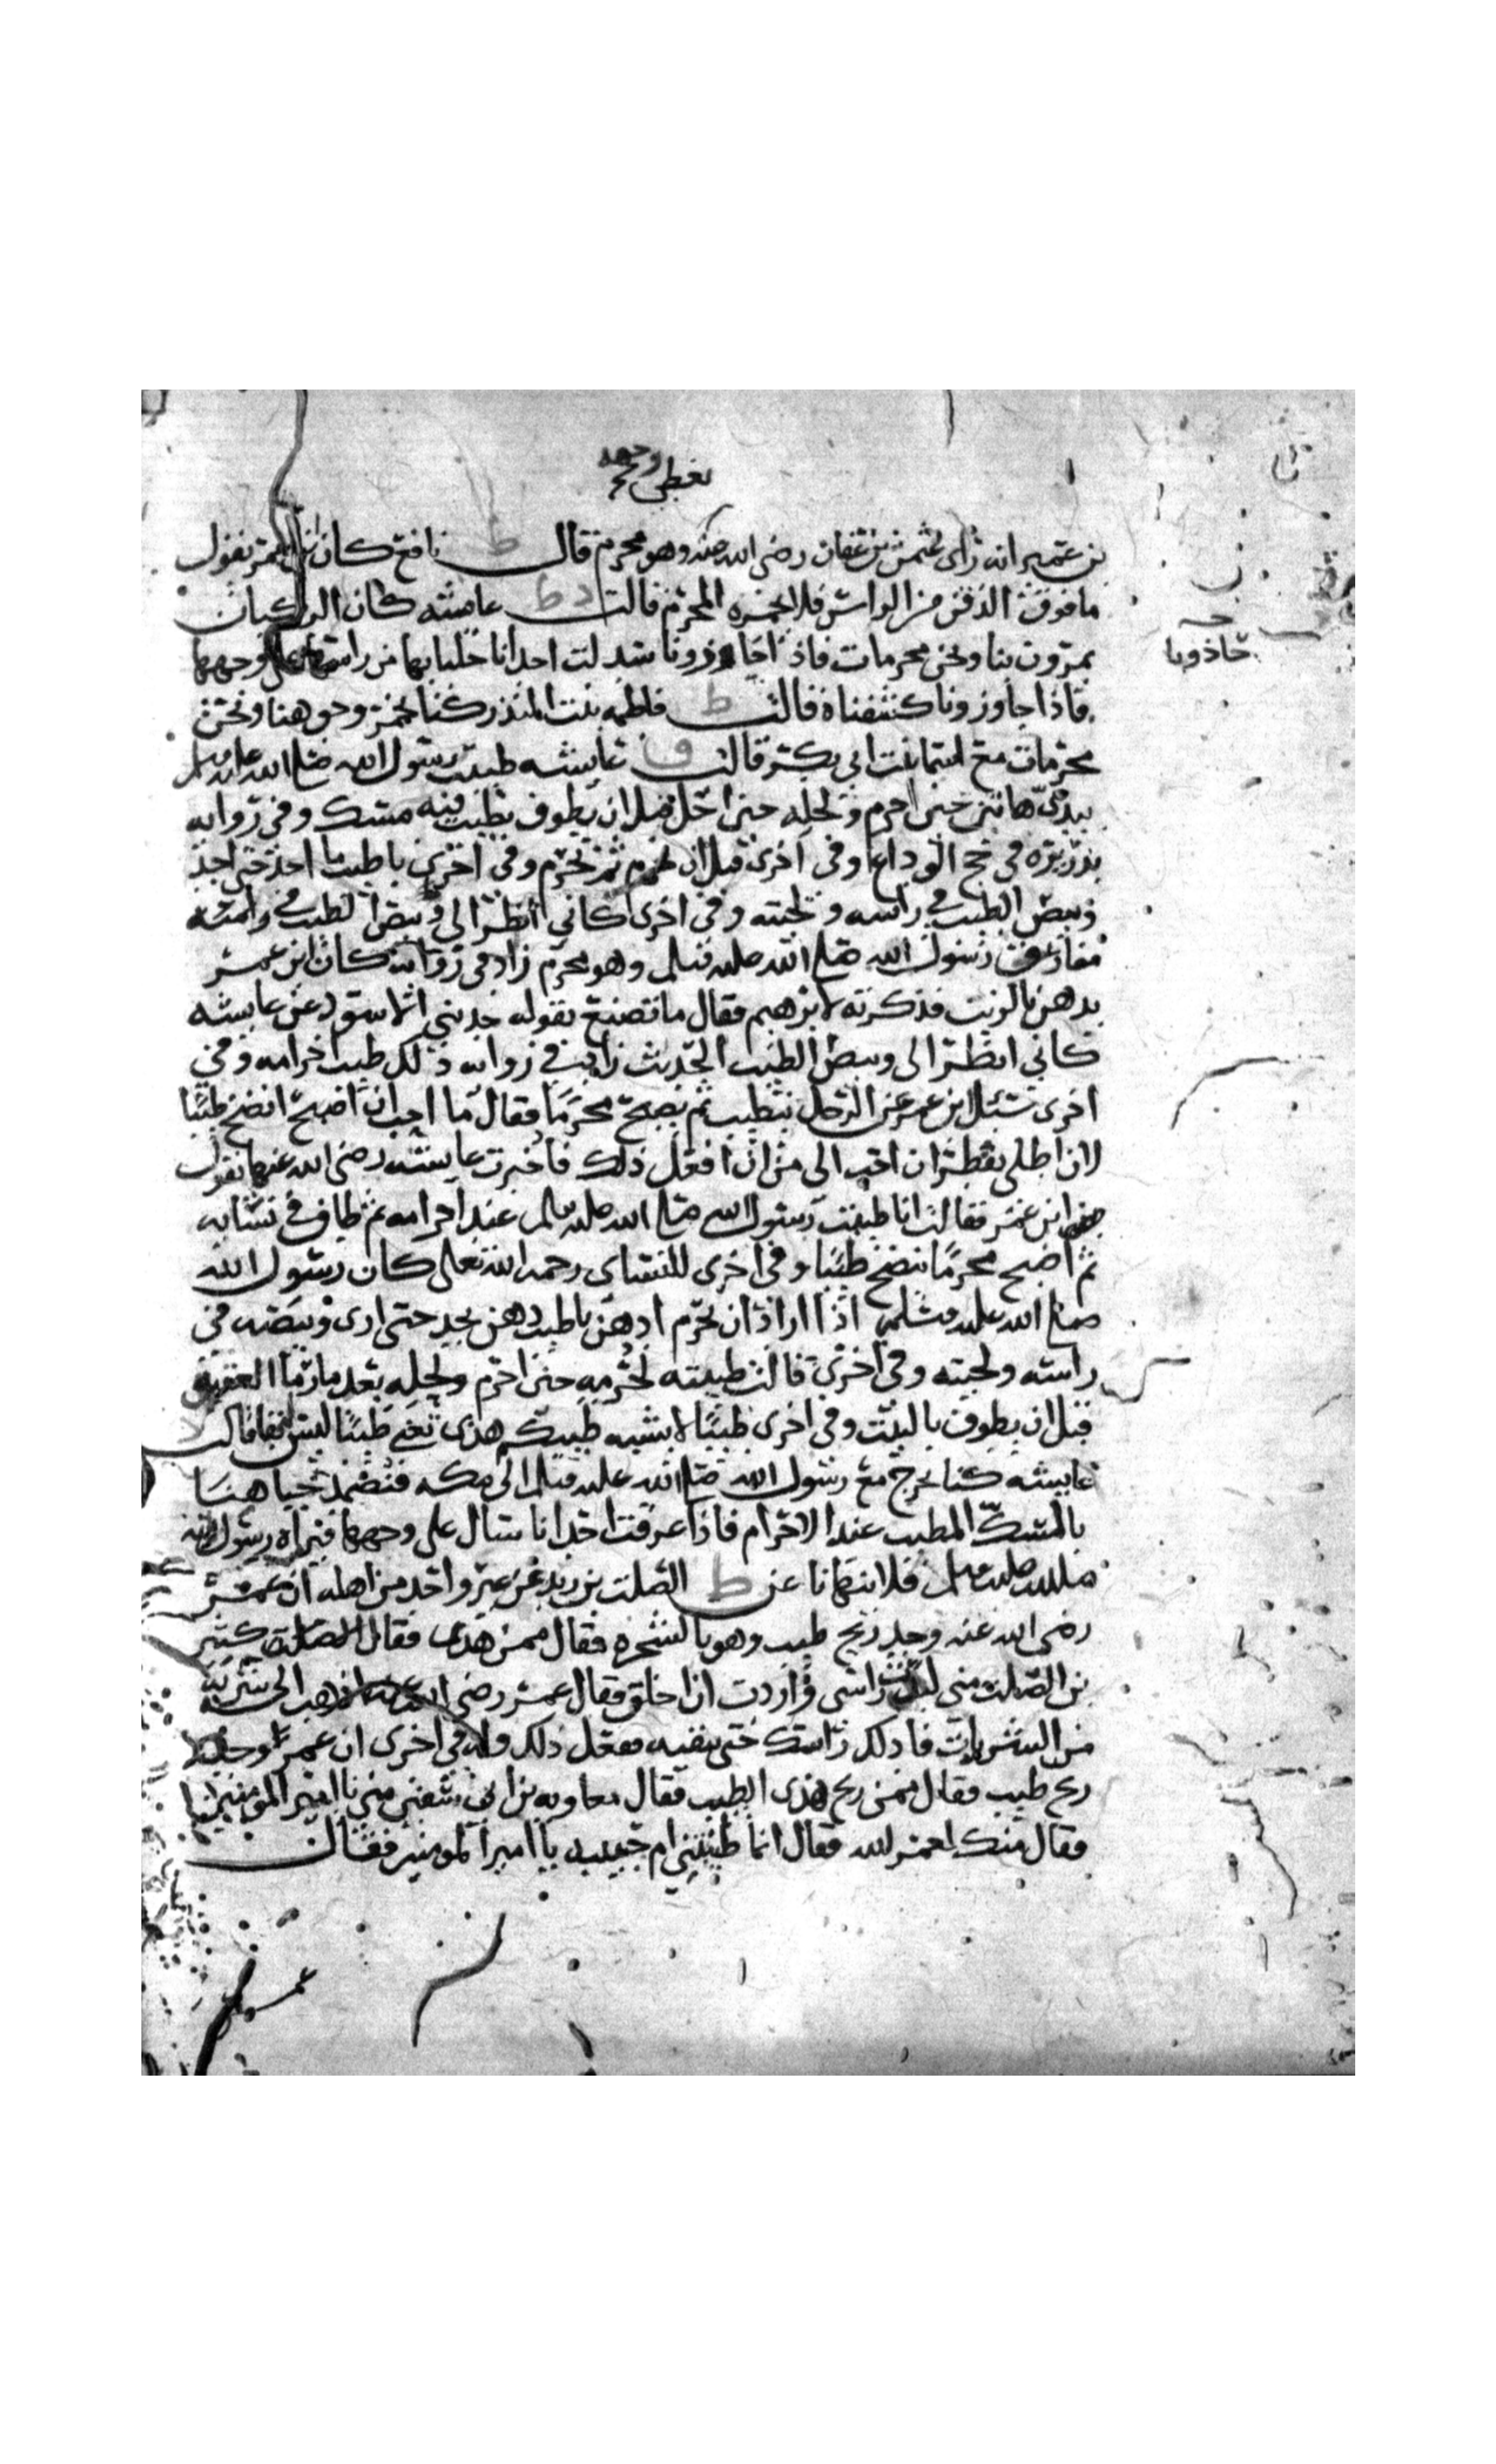 يغطى وجهه
بن عمير انه راى عثمن بن عفان رضى الله عنه وهو محرم قال ط نافع كان ابن عمر يقول
ما فوق الذقن من الراس فلا يخمره المحرم قالت د ط عايشه كان الركبان
يمرون بنا ونحن محرمات فاذا جاوزونا سدلت احدانا جلبابها من راسها على وجهها
حاذونا
فاذا جاوزونا كشفناه قالت ط فاطمه بنت المنذر كنا نخمر وجوهنا ونحن
محرمات مع اسما بنت ابي بكر قالت ق عايشه طيبت رسول الله صلى الله عليه وسلم
بيدى هاتين حين احرم ولحله حين احل قبل ان يطوف بطيب فيه مسك وفي روايه
بذريره في حج الوداع وفي اخرى قبل ان يحرم ثم يحرم وفي اخرى باطيب ما اجد حتى اجد
وبيص الطيب في راسه ولحيته وفي اخرى كاني انظر الى وبيص الطيب في
مفارق رسول الله صلى الله عليه وسلم وهو محرم زاد في روايه كان ابن عمر
يدهن بالزيت فذكرته لابرهيم فقال ما تصنع بقوله حدثني الاسود عن عايشه
كاني انظر الى وبيص الطيب الحديث زاد في روايه وذلك طيب احرامه وفي
اخرى سئل ابن عمر عن الرجل يتطيب ثم يصبح محرما فقال ما احب ان اصبح انضخ طيبا
لان اطلى بقطران احب الي من ان افعل ذلك فاخبرت عايشه رضى الله عنها بقول
ابن عمر فقالت انا طيبت رسول الله صلى الله عليه وسلم عند احرامه ثم طاف في نسايه
ثم اصبح محرما ينضخ طيبا وفي اخرى للنساى رحمه الله تعالى كان رسول الله
صلى الله عليه وسلم اذا اراد ان يحرم ادهن باطيب دهن يجد حتى ارى وبيصه في
راسه ولحيته وفي اخرى قالت طيبته لحرمه حين احرم ولحله بعد ما رما العقبه
قبل ان يطوف بالبيت وفي اخرى طيبا لا يشبه طيبكم هذى تعني طيبا ليس له بقا قالت د
عايشه كنا نخرج مع رسول الله صلى الله عليه وسلم الى مكه فنضمد جباهنا
بالمسك المطيب عند الاحرام فاذا عرقت احدانا سال على وجهها فيراه رسول الله
صلى الله عليه وسلم فلا ينهانا عن ط الصلت بن زيد عن غير واحد من اهله ان عمر
رضى الله عنه وجد ريح طيب وهو بالشجره فقال ممن هذى فقال الصلت كثير
بن الصلت مني لبدت راسى واردت ان احلق فقال عمر رضى الله عنه اذهب الى شربه
من الشربات فادلك راسك حتى تنقيه ففعل ذلك وله في اخرى ان عمر وجد
ريح طيب فقال ممن ريح هذى الطيب فقال معاويه بن ابي سفين مني يا امير المومنين
فقال منك لعمر الله فقال انما طيبتني ام حبيبه يا امير المومنين فقال
عمر